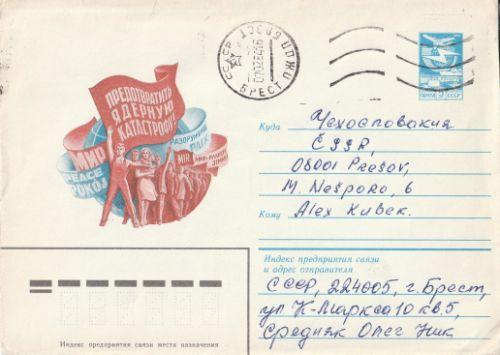 ПРЕДОТВРАТИТЬ
ЯДЕРНУЮ
КАТАСТРОФУ!
МИР
PEACE
POKÓJ
MIR
СССР
БРЕСТ
ПОЧТА
СССР
Куда Чехословакия
ČSSR,
08001 Prešov,
M. Nešporo, 6
Кому Alex Kubek.
Индекс предприятия связи
и адрес отправителя
СССР, 224005, г. Брест,
ул К-Маркса 10 кв. 5,
Средняк Олег Ник
Индекс предприятия связи места назначения